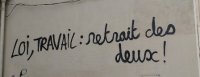 LOI, TRAVAIL : retrait des
deux !